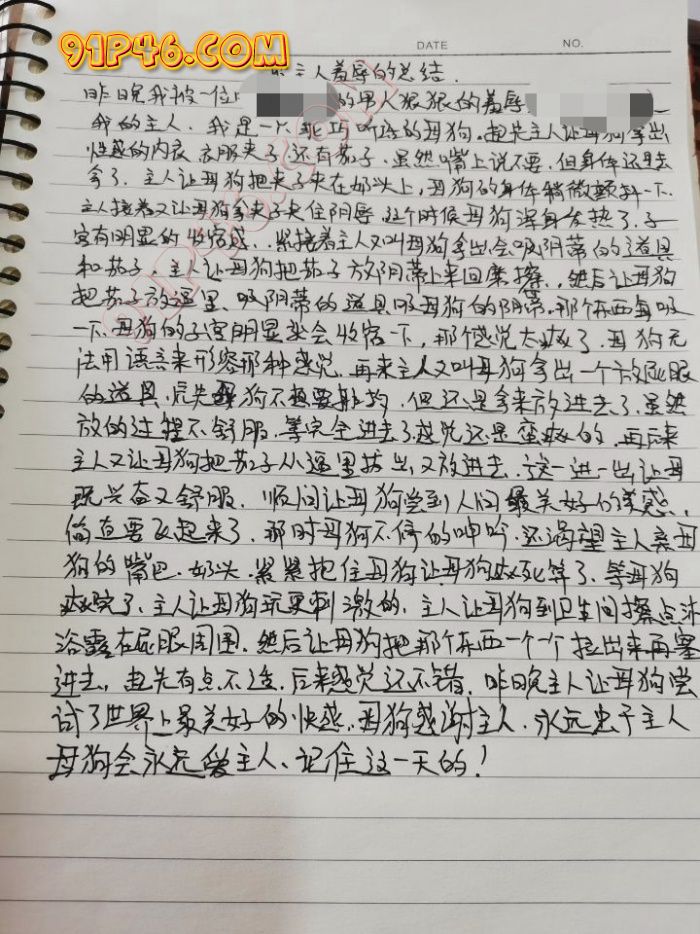 91P46.COM
DATE NO.
主人羞辱的总结.
昨晚我被一位 的男人狠狠的羞辱
我的主人. 我是一只乖巧听话的母狗. 起先主人让母狗拿出
性感的内衣 衣服夹子, 还有茄子. 虽然嘴上说不要. 但身体还是去
拿了. 主人让母狗把夹子夹在奶头上, 母狗的身体稍微颤抖一下.
主人接着又让母狗拿夹子夹住阴唇 这个时候母狗浑身发热了. 子
宫有明显的收宿感. 紧接着主人又叫母狗拿出会吸阴蒂的道具
和茄子. 主人让母狗把茄子放阴蒂上来回摩擦. 然后让母狗
把茄子放逼里、吸阴蒂的道具吸母狗的阴蒂. 那个东西每吸
一下母狗的子宫明显就会收宿一下, 那个感觉太爽了. 母狗无
法用语言来形容那种感觉. 再来主人又叫母狗拿出一个放屁眼
的道具. 母狗不想要 但还是拿来放进去了. 虽然
放的过程不舒服. 等完全进去了感觉还是蛮爽的. 再后来
主人又让母狗把茄子从逼里拔出又放进去. 这一进一出让母
既兴奋又舒服. 顺间让母狗尝到人间最美好的
要飞起来了. 那时母狗不停的呻吟. 还渴望主人 母
狗的嘴巴. 奶头. 紧紧把住母狗让母狗爽死算了. 等母狗
爽完了. 主人让母狗玩更刺激的. 主人让母狗到卫生间擦点沐
浴露在屁眼周围. 然后让母狗把那个东西一个一个拉出来再塞
进去. 起先有点不适. 后来感觉还不错. 昨晚主人让母狗尝
试了世界上最美好的快感. 母狗感谢主人. 永远忠于主人
母狗会永远爱主人、记住这一天的!